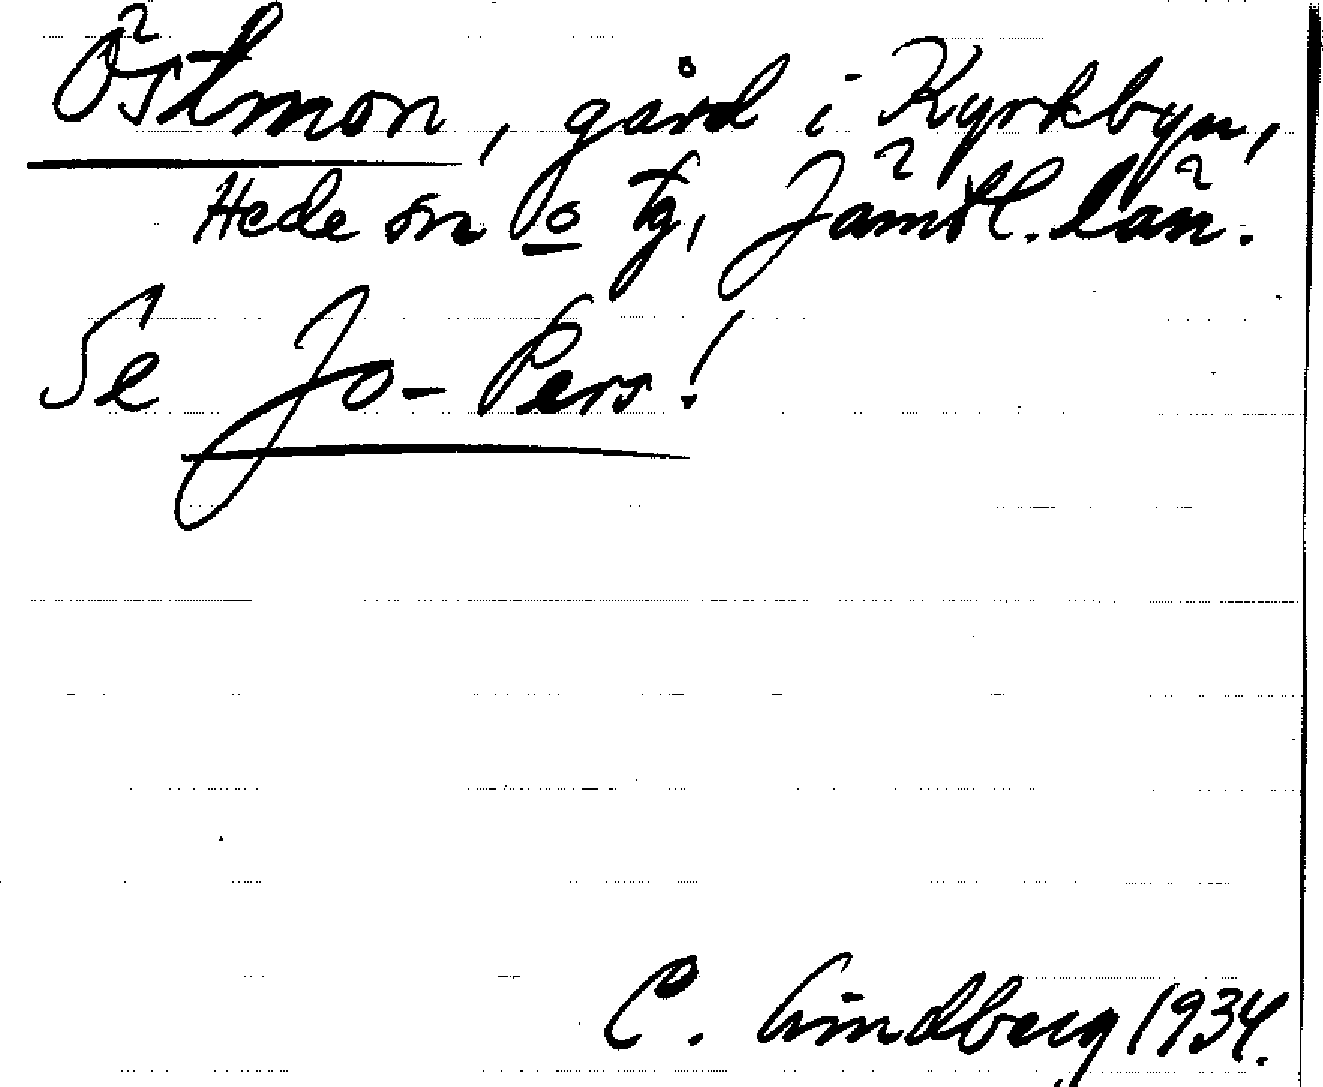 Östmon, gård i Kyrkbyn,
Hede sn o tg, Jämtl. län.
Se Jo-Pers!
C. Lindberg 1934.